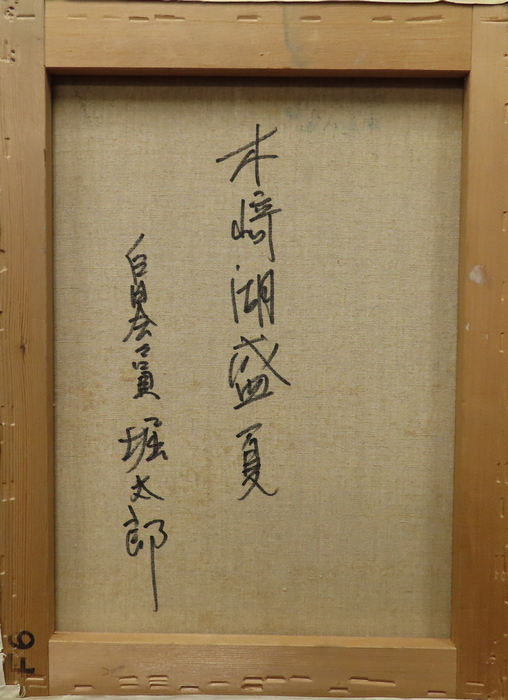 木崎湖盛夏
白日会々員 堀太郎
F6